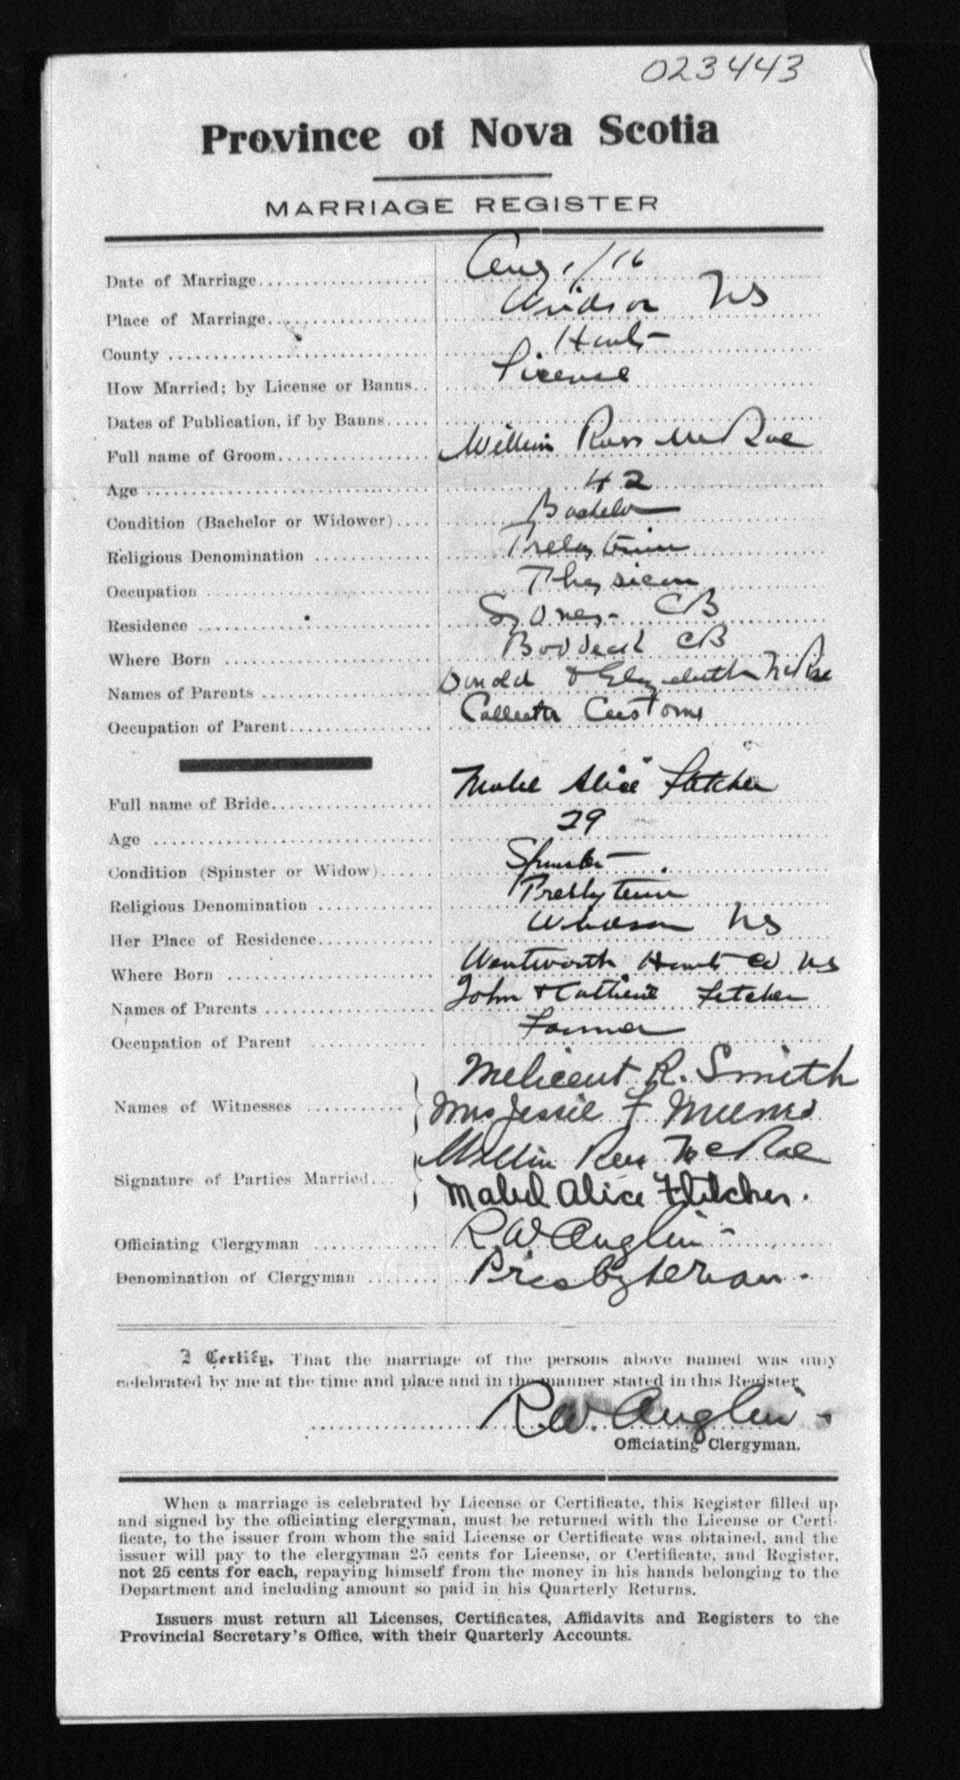 023443
Province of Nova Scotia
MARRIAGE REGISTER
Date of Marriage Aug 1/16
Place of Marriage Windsor NS
County Hants
How Married; by License or Banns License
Dates of Publication, if by Banns
Full name of Groom William Ross McRae
Age 42
Condition (Bachelor or Widower) Bachelor
Religious Denomination Presbyterian
Occupation Physician
Residence Sydney CB
Where Born Baddeck CB
Names of Parents Donald & Elizabeth McRae
Occupation of Parent Collector Customs
Full name of Bride Mabel Alice Fletcher
Age 29
Condition (Spinster or Widow) Spinster
Religious Denomination Presbyterian
Her Place of Residence Windsor NS
Where Born Wentworth Hants Co NS
Names of Parents John & Catherine Fletcher
Occupation of Parent Farmer
Melicent R. Smith
Names of Witnesses Mrs Jessie F
William Ross McRae
Signature of Parties Married Mabel Alice Fletcher.
Officiating Clergyman R. W. Anglin
Denomination of Clergyman Presbyterian.
I Certify, That the marriage of the persons above named was duly
celebrated by me at the time and place and in the manner stated in this Register
R. W. Anglin
Officiating Clergyman.
When a marriage is celebrated by License or Certificate, this Register filled up
and signed by the officiating clergyman, must be returned with the License or Certi-
ficate, to the issuer from whom the said License or Certificate was obtained, and the
issuer will pay to the clergyman 25 cents for License, or Certificate, and Register,
not 25 cents for each, repaying himself from the money in his hands belonging to the
Department and including amount so paid in his Quarterly Returns.
Issuers must return all Licenses, Certificates, Affidavits and Registers to the
Provincial Secretary's Office, with their Quarterly Accounts.